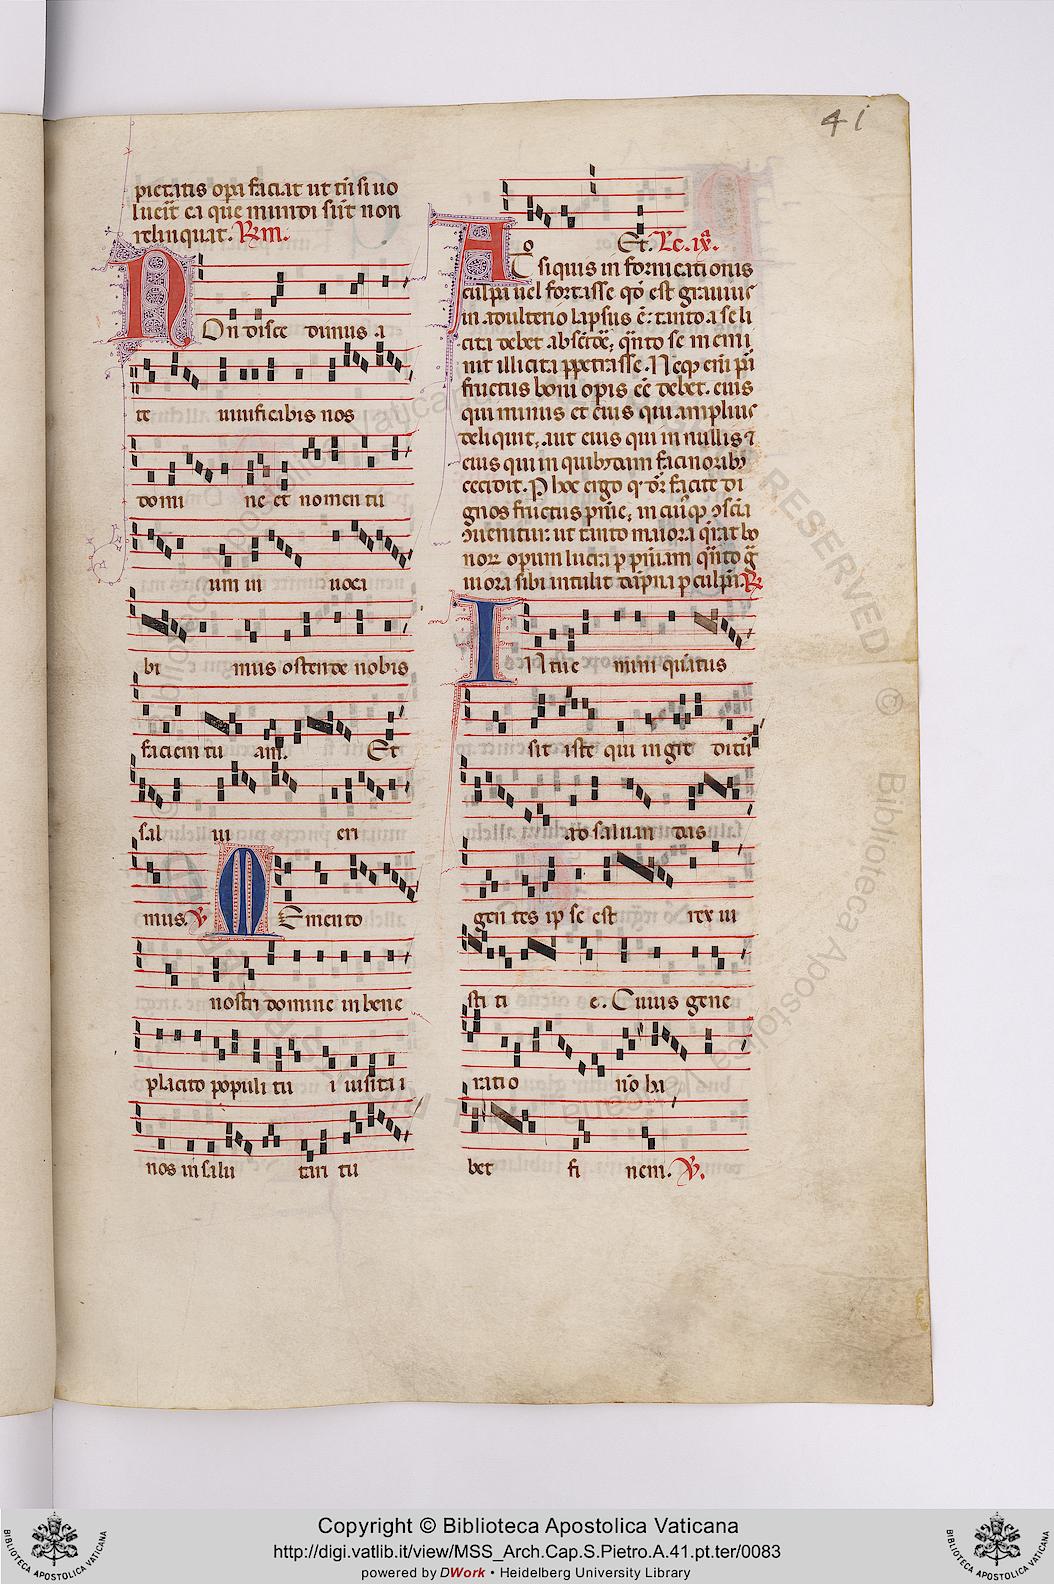 41
pietatis opa faciat ut tn̄ si uo
luerit ea que mundi sūt non
relinquat. R̄m.
Non disce dimus a
te uiuificabis nos
domi ne et nomen tu
um in uoca
bi mus ostende nobis
faciem tu am. Et
sal ui eri
mus. V Memento
nostri domine in bene
placito populi tu i uisita
nos in salu tari tu
o Et. Lc. ixa.
At siquis in fornicationis
culpa uel fortasse qd̄ est grauius
in adulterio lapsus ē: tanto a se li
cita debet abscīdē, qn̄to se memi
nit illicita ppetrasse. Neqꝫ eni pai
fructus boni opis eē debet. eius
qui minus et eius qui amplius
deliquit, aut eius qui in nullis ⁊
eius qui in quibꝫdam facinoribꝫ
cecidit. P hoc ergo q dr̄ facite di
gnos fructus pn̄ie, in cuiꝰqꝫ ↄsciā
ↄuenitur: ut tanto maiora q̄rat bo
noꝝ opum lucra p pn̄iam qn̄to g̃
uiora sibi intulit dāpna p culpā. R
Intue mini quātus
sit iste qui ingre ditū
ad saluan das
gen tes ip se est rex iu
sti ti e. Cuius gene
ratio nō ha
bet fi nem. V.
Copyright © Biblioteca Apostolica Vaticana
http://digi.vatlib.it/view/MSS_Arch.Cap.S.Pietro.A.41.pt.ter/0083
powered by DWork • Heidelberg University Library
BIBLIOTECA APOSTOLICA VATICANA
BIBLIOTECA APOSTOLICA VATICANA